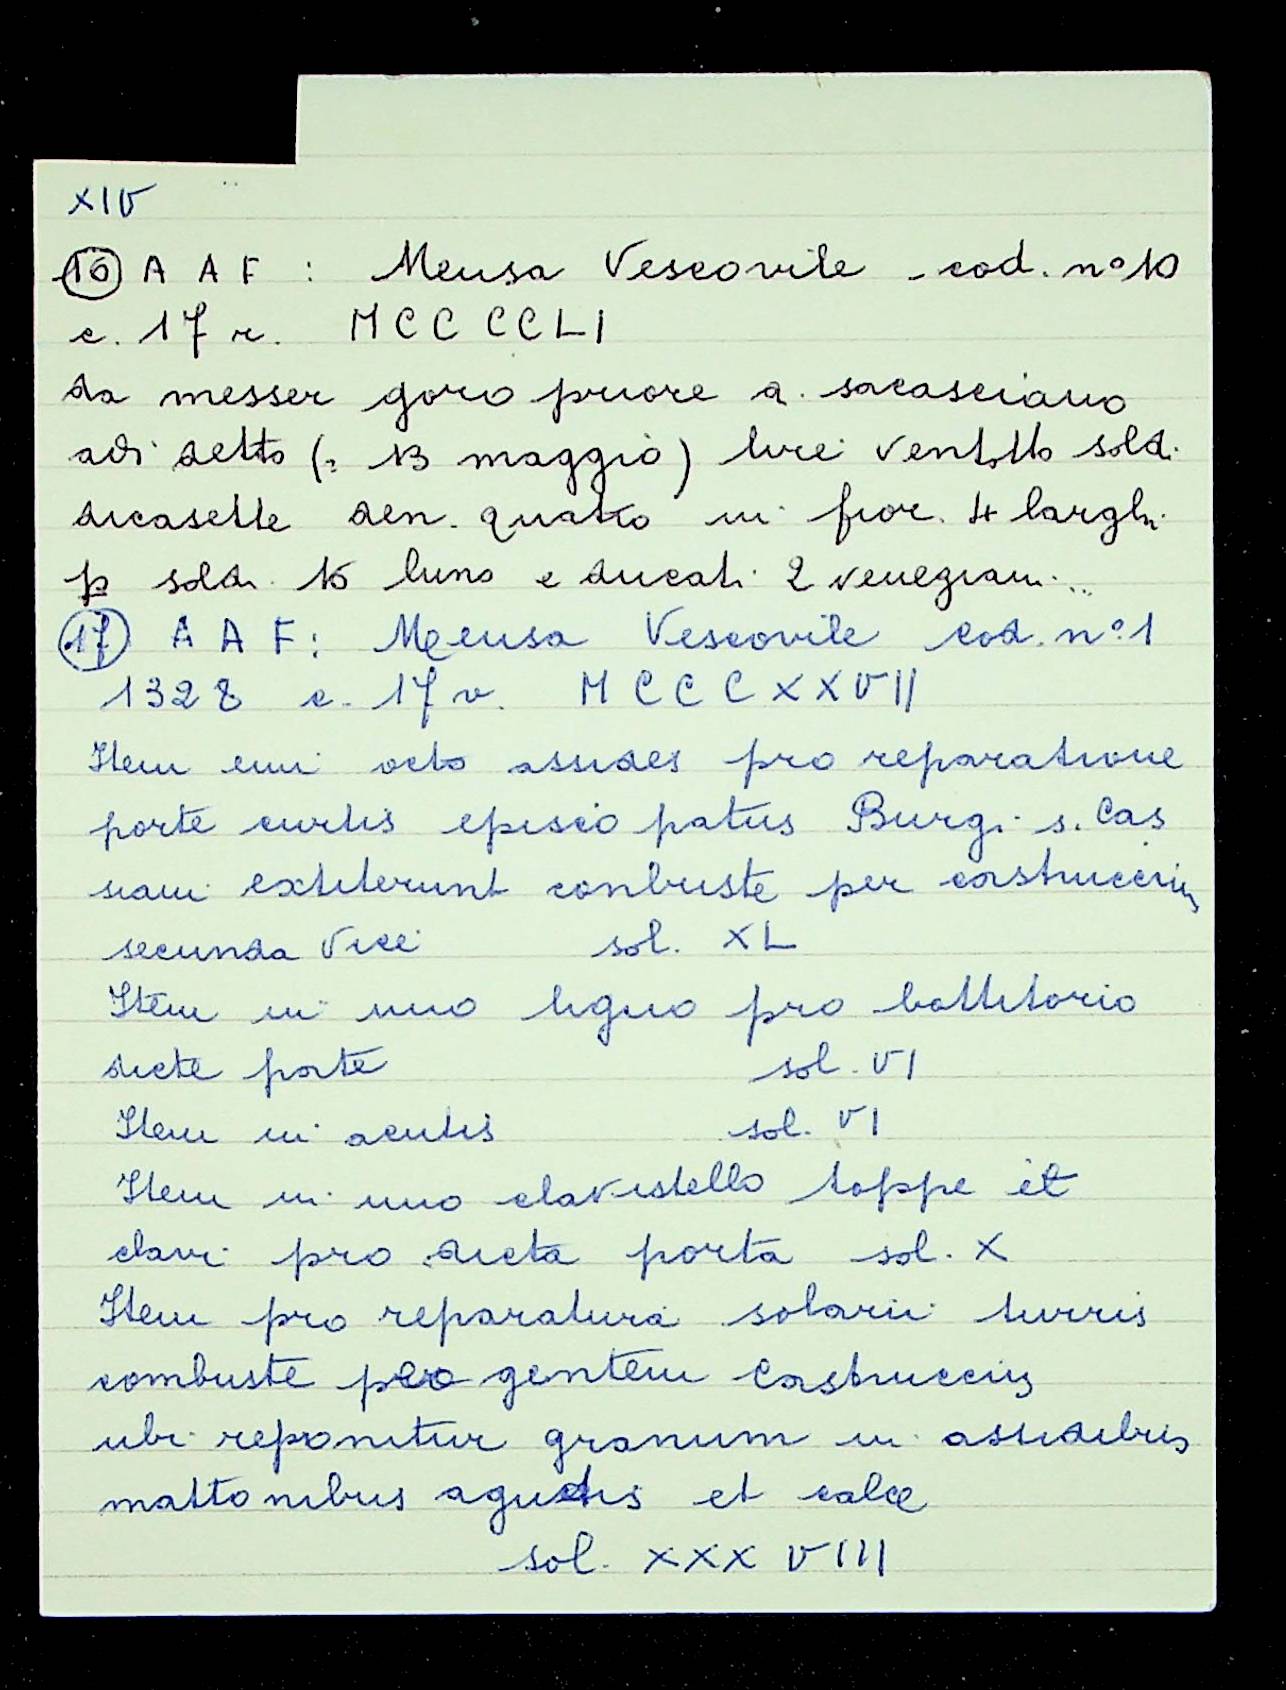 XIV
16 A A F : Mensa Vescovile - cod. n° 10
c. 17 r. MCC CCLI
da messer goro priore a. sacasciano
adi detto (= 13 maggio) lire ventotto sold.
dicasette den. quatro in fior. 4 larghi
p sold. 16 luno e ducati 2 venegiani...
17 A A F : Mensa Vescovile cod. n° 1
1328 c. 17 v. MCCCXXVII
Item emi octo assides pro reparatione
porte curtis episco patus Burgi s. Cas
siani extiterunt conbuste per castruccium
secunda vice sol. XL
Item in uno ligno pro battitorio
dicte porte sol. VI
Item in acutis sol. VI
Item in uno clavistello toppe et
clavi pro dicta porta sol. X
Item pro reparatura solarii turris
combuste per gentem Castruccii
ubi reponitur granum in assidibus
mattonibus agutis et calce
sol. XXX VIII